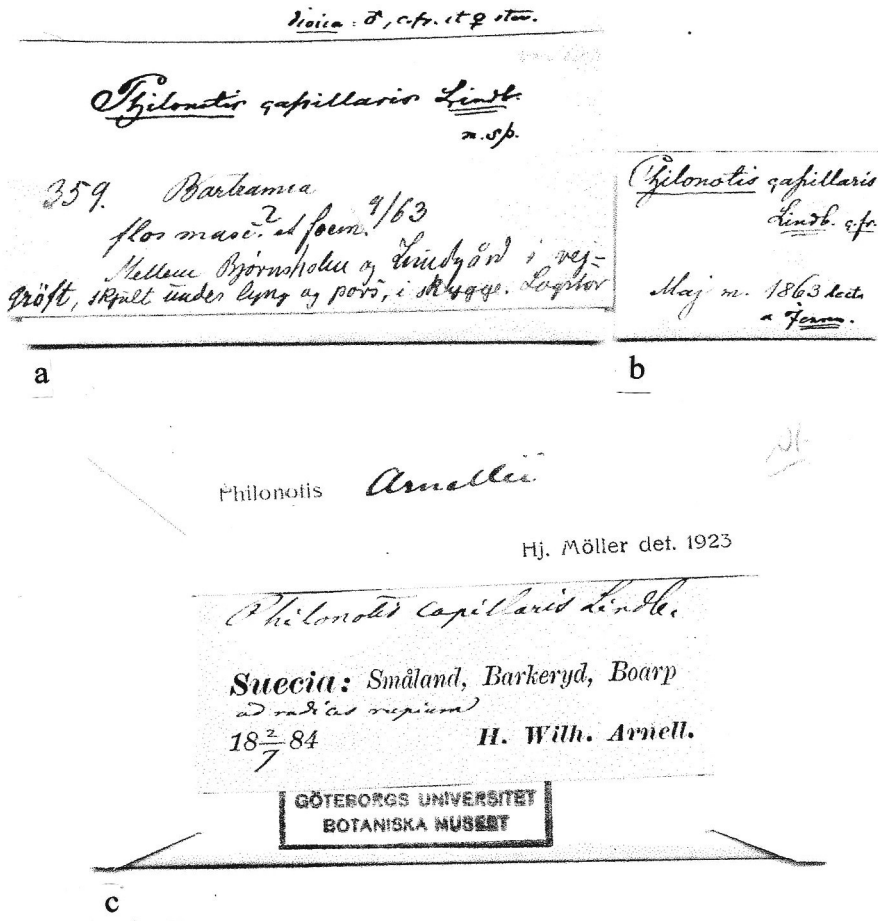 dioica: ♂, c. fr. et ♀ ster.
Philonotis capillaris Lindb.
n. sp.
359. Bartramia
flos masc.? et foem. 9/63
Mellem Bjørnsholm og Lundgård i vej=
gröft, skjult under lyng og pors, i skygge. Løgstør
a
Philonotis capillaris
Lindb. c. fr.
Maj m. 1863 lecta
a Jensen.
b
Philonotis Arnellii
Hj. Möller det. 1923
Philonotis capillaris Lindb.
Suecia: Småland, Barkeryd, Boarp
ad radices rupium
18 2/7 84 H. Wilh. Arnell.
GÖTEBORGS UNIVERSITET
BOTANISKA MUSEET
c